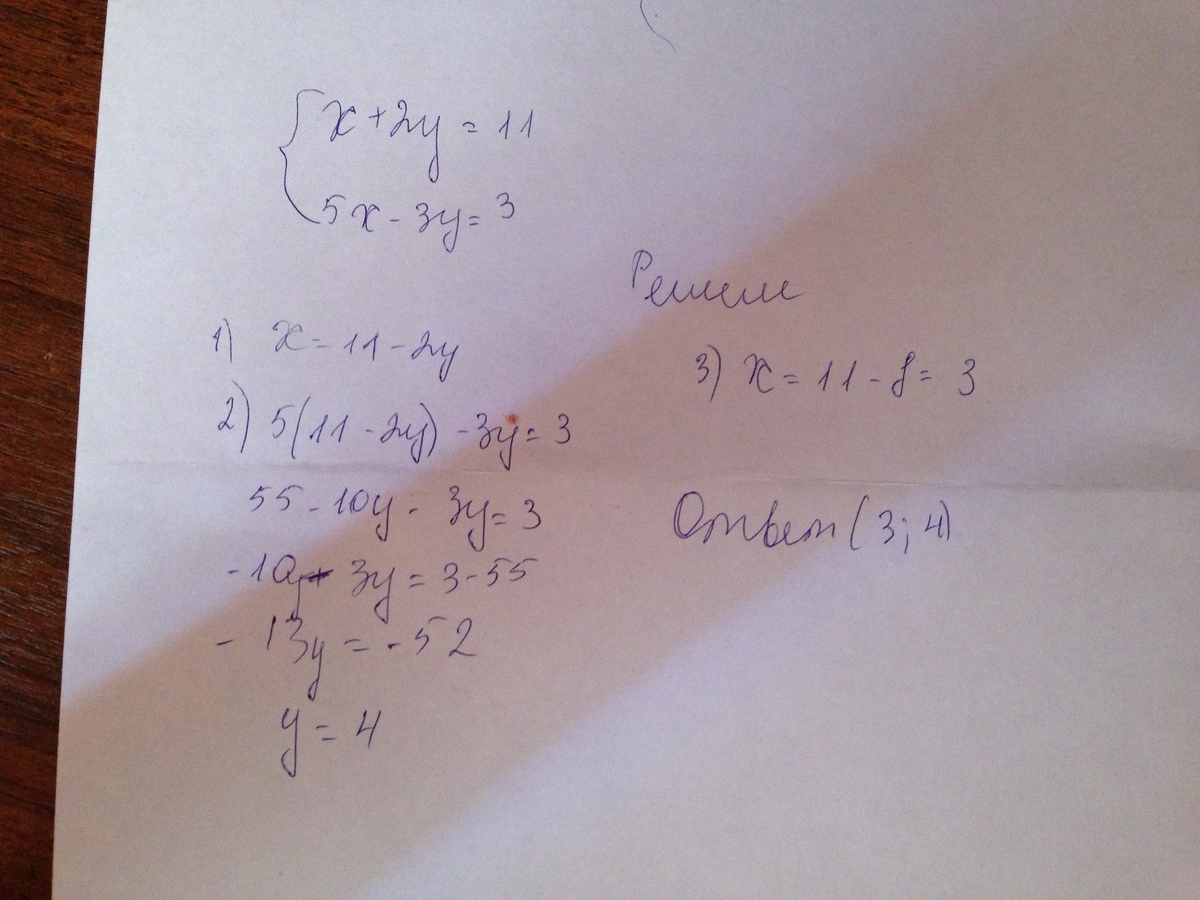 x + 2y = 11
5x - 3y = 3
Решим
1) x = 11 - 2y
2) 5(11 - 2y) - 3y = 3
55 - 10y - 3y = 3
-10y - 3y = 3 - 55
-13y = -52
y = 4
3) x = 11 - 8 = 3
Ответ (3; 4)